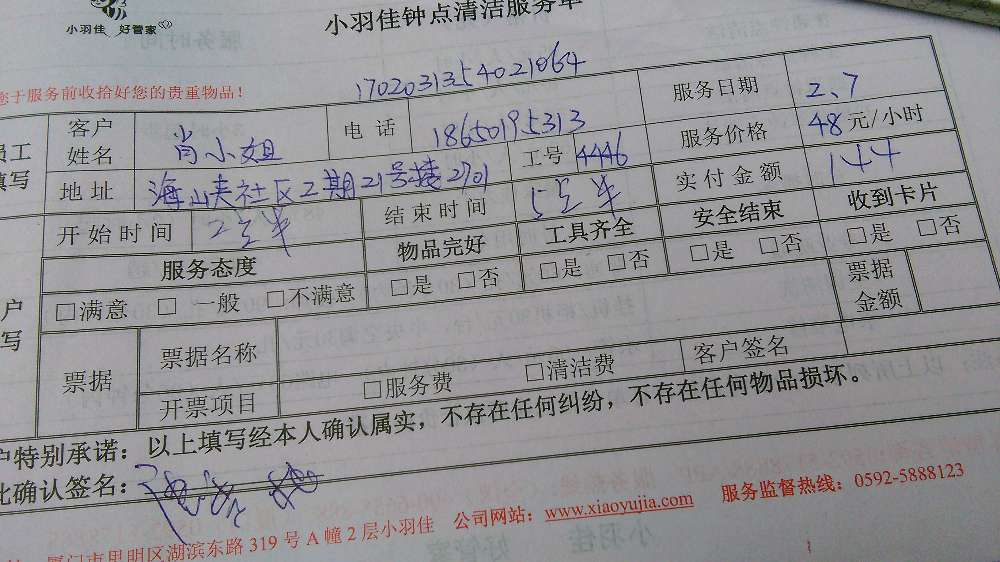 小羽佳 好管家
小羽佳钟点清洁服务单
您于服务前收拾好您的贵重物品！
1702031354021064
员工填写 客户姓名 肖小姐 电话 18650195313 服务日期 2、7
地址 海峡社区2期21号楼2701 工号 4446 服务价格 48元/小时
开始时间 2点半 结束时间 5点半 实付金额 144
服务态度 物品完好 工具齐全 安全结束 收到卡片
户写 □满意 □一般 □不满意 □是 □否 □是 □否 □是 □否 □是 □否
票据 票据名称 票据金额
开票项目 □服务费 □清洁费 客户签名
户特别承诺：以上填写经本人确认属实，不存在任何纠纷，不存在任何物品损坏。
此确认签名：
厦门市思明区湖滨东路319号A幢2层小羽佳 公司网站：www.xiaoyujia.com 服务监督热线：0592-5888123